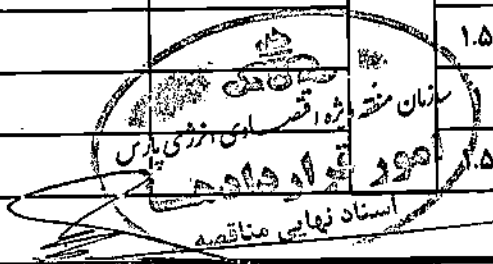 ۱.۵
سازمان منطقه ویژه اقتصادی انرژی پارس
۱.۵
امور قراردادها
اسناد نهایی مناقصه